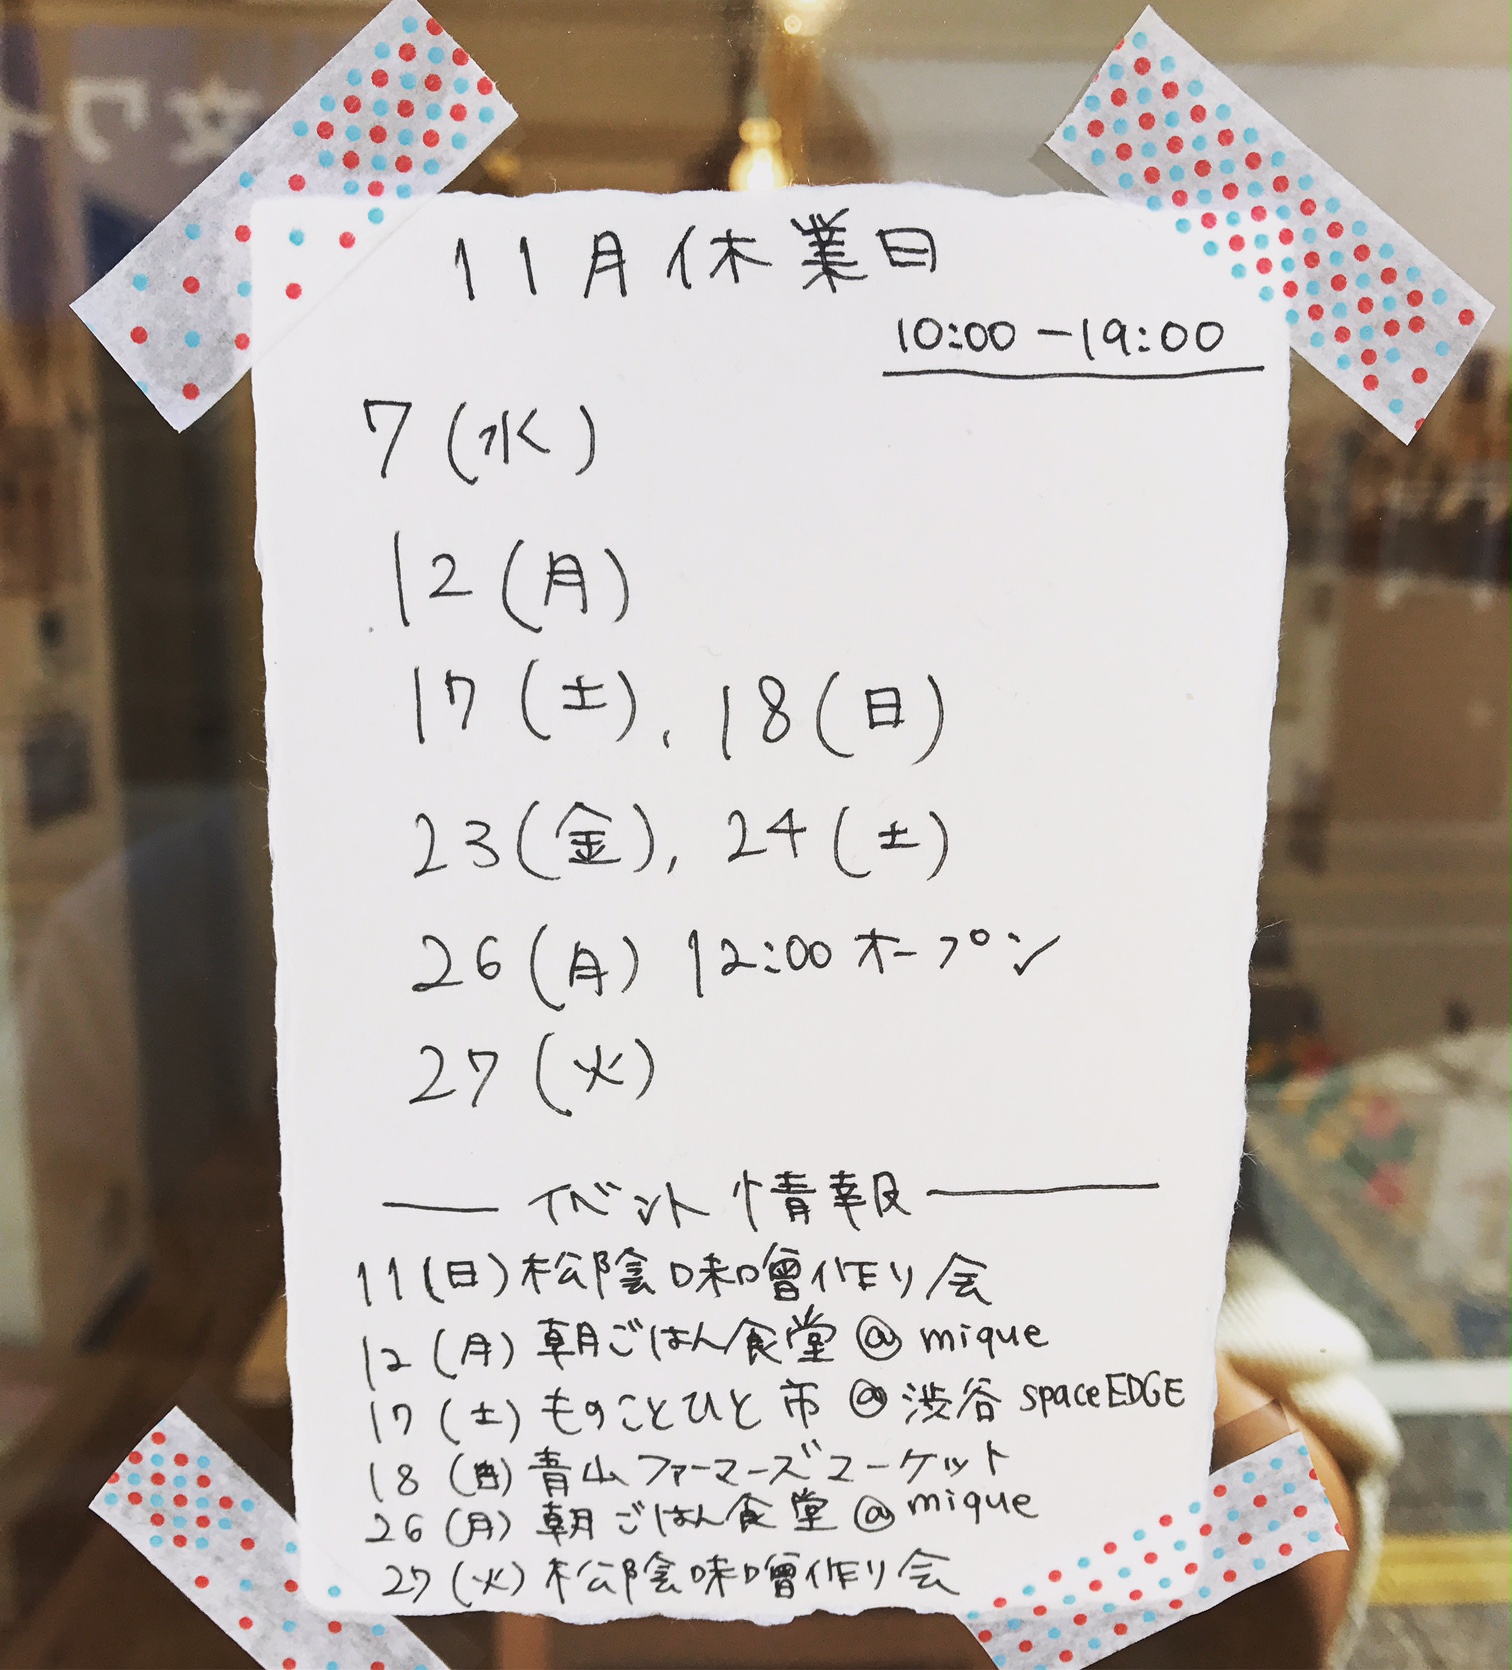 11月休業日
10:00-19:00
7(水)
12(月)
17(土)、18(日)
23(金)、24(土)
26(月) 12:00オープン
27(火)
イベント情報
11(日)松陰味噌作り会
12(月)朝ごはん食堂@mique
17(土)ものことひと市@渋谷spaceEDGE
18(日)青山ファーマーズマーケット
26(月)朝ごはん食堂@mique
27(火)松陰味噌作り会